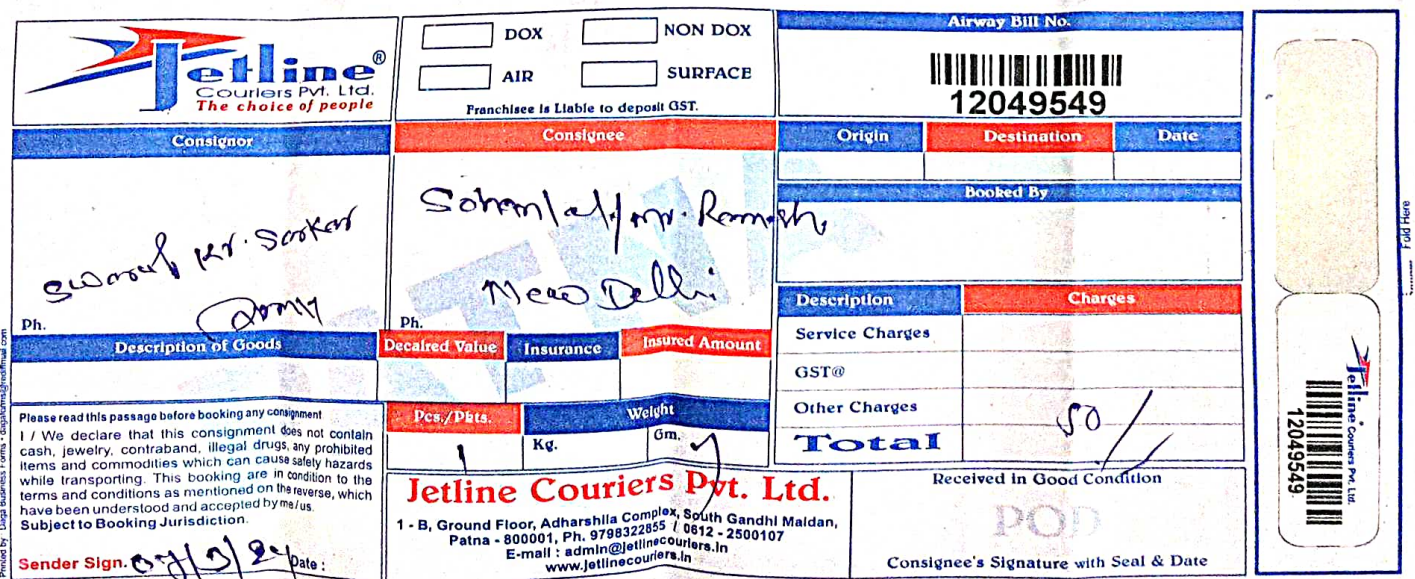 Jetline®
Couriers Pvt. Ltd.
The choice of people
DOX
NON DOX
AIR
SURFACE
Franchisee is Liable to deposit GST.
Airway Bill No.
12049549
Consignor
Swarup Kr. Sarkar
Army
Ph.
Consignee
Sohanlal/Mr. Ramesh
New Delhi
Ph.
Origin
Destination
Date
Booked By
Description of Goods
Decalred Value
Insurance
Insured Amount
Description
Charges
Service Charges
GST@
Other Charges
Total
50/
Please read this passage before booking any consignment
I / We declare that this consignment does not contain
cash, jewelry, contraband, illegal drugs, any prohibited
items and commodities which can cause safety hazards
while transporting. This booking are in condition to the
terms and conditions as mentioned on the reverse, which
have been understood and accepted by me/us.
Subject to Booking Jurisdiction.
Sender Sign.
07/3/24
Date :
Pcs./Pkts.
1
Weight
Kg.
Gm.
Jetline Couriers Pvt. Ltd.
1 - B, Ground Floor, Adharshila Complex, South Gandhi Maidan,
Patna - 800001, Ph. 9798322855 / 0612 - 2500107
E-mail : admin@jetlinecouriers.in
www.jetlinecouriers.in
Received In Good Condition
POD
Consignee's Signature with Seal & Date
Fold Here
Jetline Couriers Pvt. Ltd.
12049549